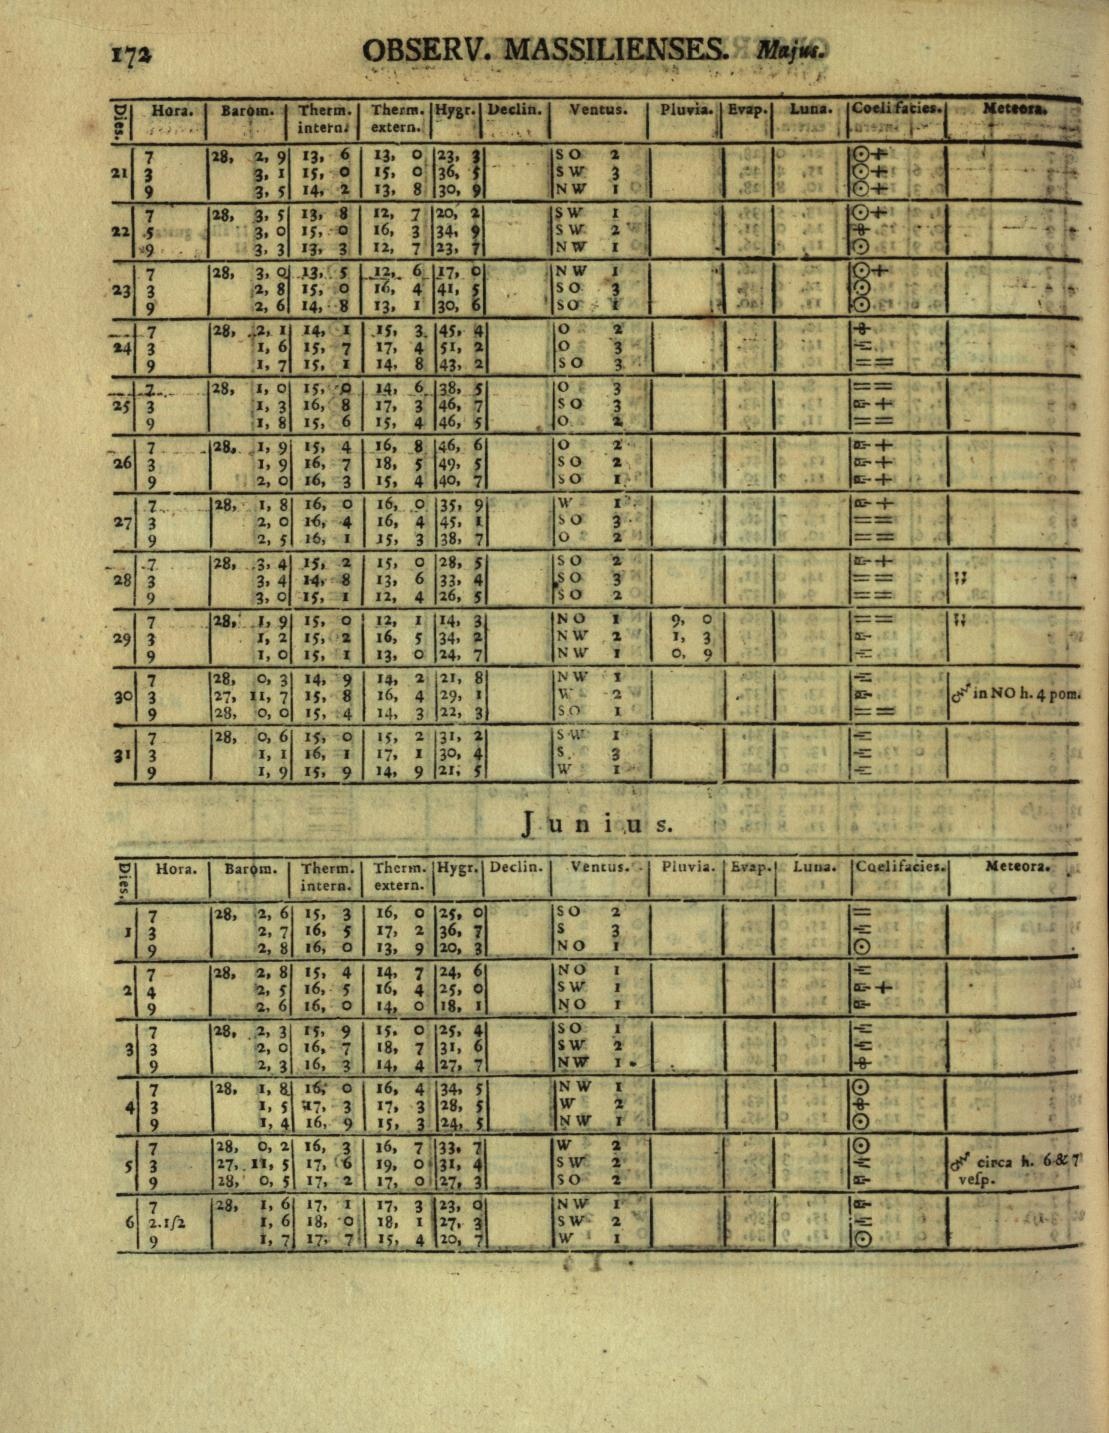 172 OBSERV. MASSILIENSES. Majus.
Dies. Hora. Barom. Therm. intern. Therm. extern. Hygr. Declin. Ventus. Pluvia. Evap. Luna. Coeli facies. Meteora.
7 28, 2, 9 13, 6 13, 0 23, 3 S O 2 ☉+
21 3 3, 1 15, 0 15, 0 36, 5 S W 3 ☉+
9 3, 5 14, 2 13, 8 30, 9 N W 1 ☉+
7 28, 3, 5 13, 8 12, 7 20, 2 S W 1 ☉+
22 5 3, 0 15, 0 16, 3 34, 9 S W 2
9 3, 3 13, 3 12, 7 23, 7 N W 1 ☉
7 28, 3, 0 13, 5 12, 6 17, 0 N W 1 ☉+
23 3 2, 8 15, 0 16, 4 41, 5 S O 3 ☉
9 2, 6 14, 8 13, 1 30, 6 S O 1 ☉
7 28, 2, 1 14, 1 15, 3 45, 4 O 2
24 3 1, 6 15, 7 17, 4 51, 2 O 3
9 1, 7 15, 1 14, 8 43, 2 S O 3 ==
7 28, 1, 0 15, 0 14, 6 38, 5 O 3 ==
25 3 1, 3 16, 8 17, 3 46, 7 S O 3 +
9 1, 8 15, 6 15, 4 46, 5 O 2 ==
7 28, 1, 9 15, 4 16, 8 46, 6 O 2 +
26 3 1, 9 16, 7 18, 5 49, 5 S O 2 +
9 2, 0 16, 3 15, 4 40, 7 S O 1 +
7 28, 1, 8 16, 0 16, 0 35, 9 W 1 +
27 3 2, 0 16, 4 16, 4 45, 1 S O 3 ==
9 2, 5 16, 1 15, 3 38, 7 O 2 ==
7 28, 3, 4 15, 2 15, 0 28, 5 S O 2 +
28 3 3, 4 14, 8 13, 6 33, 4 S O 3 ==
9 3, 0 15, 1 12, 4 26, 5 S O 2 ==
7 28, 1, 9 15, 0 12, 1 14, 3 N O 1 9, 0 ==
29 3 1, 2 15, 2 16, 5 34, 2 N W 2 1, 3
9 1, 0 15, 1 13, 0 24, 7 N W 1 0, 9
7 28, 0, 3 14, 9 14, 2 21, 8 N W 1
30 3 27, 11, 7 15, 8 16, 4 29, 1 W 2 in NO h. 4 pom.
9 28, 0, 0 15, 4 14, 3 22, 3 S O 1 ==
7 28, 0, 6 15, 0 15, 2 31, 2 S W 1
31 3 1, 1 16, 1 17, 1 30, 4 S. 3
9 1, 9 15, 9 14, 9 21, 5 W 1
Junius.
Dies. Hora. Barom. Therm. intern. Therm. extern. Hygr. Declin. Ventus. Pluvia. Evap. Luna. Coeli facies. Meteora.
7 28, 2, 6 15, 3 16, 0 25, 0 S O 2 =
1 3 2, 7 16, 5 17, 2 36, 7 S 3
9 2, 8 16, 0 13, 9 20, 3 N O 1 ☉
7 28, 2, 8 15, 4 14, 7 24, 6 N O 1
2 4 2, 5 16, 5 16, 4 25, 0 S W 1 +
9 2, 6 16, 0 14, 0 18, 1 N O 1
7 28, 2, 3 15, 9 15, 0 25, 4 S O 1
3 3 2, 0 16, 7 18, 7 31, 6 S W 2
9 2, 3 16, 3 14, 4 27, 7 N W 1
7 28, 1, 8 16, 0 16, 4 34, 5 N W 1 ☉
4 3 1, 5 17, 3 17, 3 28, 5 W 2
9 1, 4 16, 9 15, 3 24, 5 N W 1 ☉
7 28, 0, 2 16, 3 16, 7 33, 7 W 2 ☉
5 3 27, 11, 5 17, 6 19, 0 31, 4 S W 2 circa h. 6 & 7
9 28, 0, 5 17, 2 17, 0 27, 3 S O 2 veſp.
7 28, 1, 6 17, 1 17, 3 23, 0 N W 1
6 2.1ſ2 1, 6 18, 0 18, 1 27, 3 S W 2
9 1, 7 17, 7 15, 4 20, 7 W 1 ☉